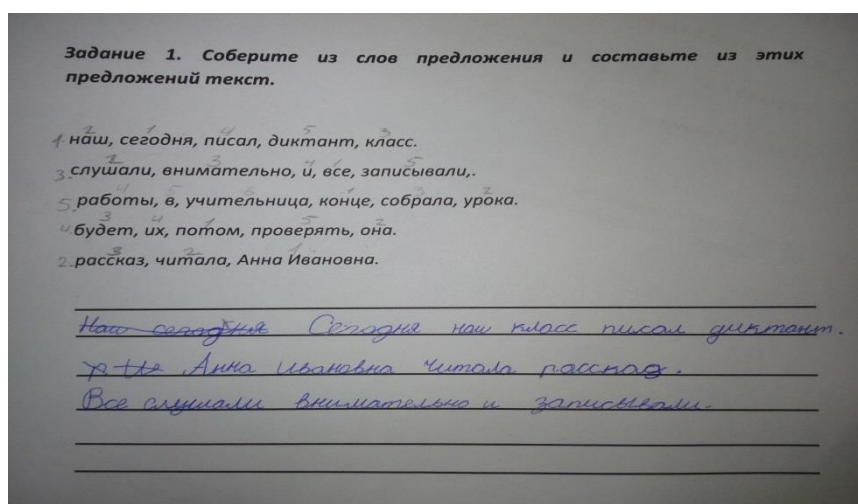 Задание 1. Соберите из слов предложения и составьте из этих
предложений текст.
2 1 4 5 3
1. наш, сегодня, писал, диктант, класс.
2 3 4 1 5
3. слушали, внимательно, и, все, записывали,.
4 5 6 1 3 2
5. работы, в, учительница, конце, собрала, урока.
3 4 1 5 2
4. будет, их, потом, проверять, она.
3 2 1
2. рассказ, читала, Анна Ивановна.
Наш сегодня Сегодня наш класс писал диктант.
Анна Ивановна читала рассказ.
Все слушали внимательно и записывали.